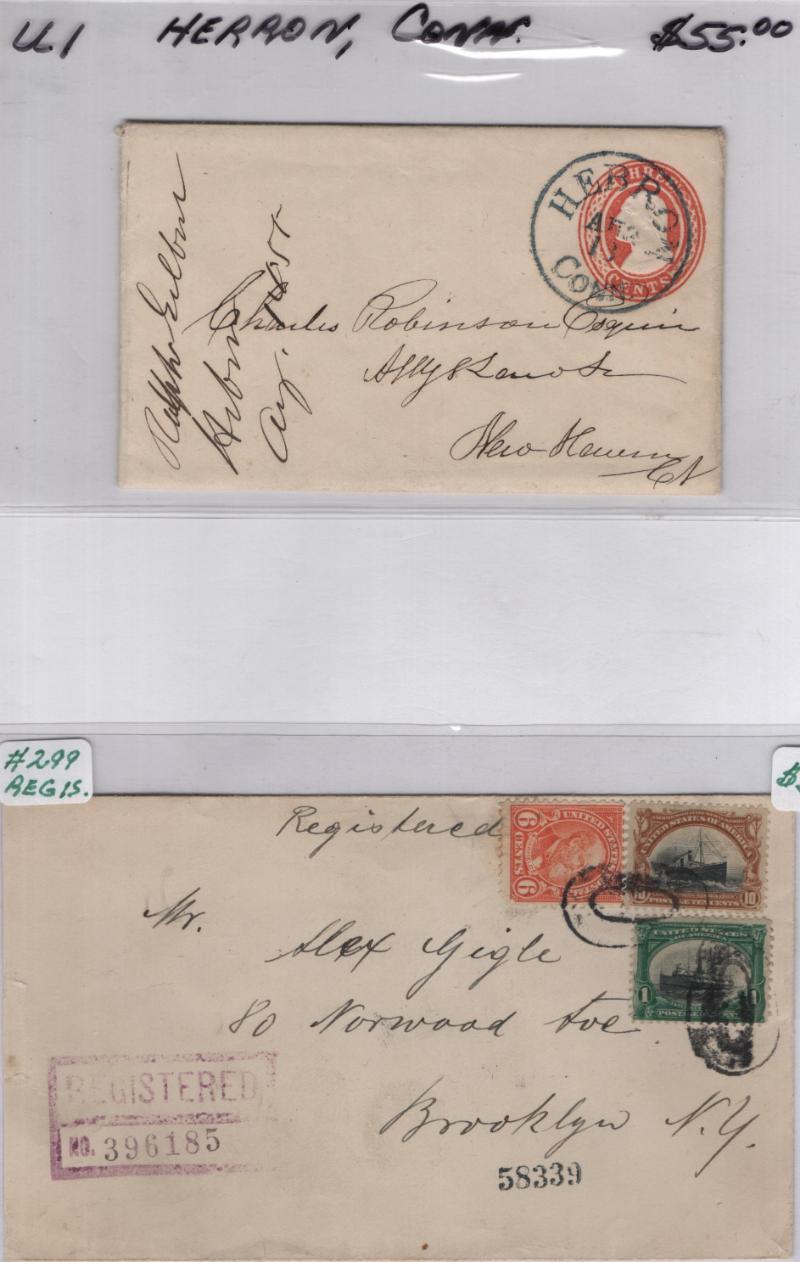 U1 HERRON, CONN. $55.00
HEBRON
11
CONN
THREE
CENTS
Ralph Gilbert
Charles Robinson Esquire
New Haven
Ct
#299
REGIS.
$
Registered
UNITED STATES
6 CENTS 6
UNITED STATES OF AMERICA
10 POSTAGE TEN CENTS 10
UNITED STATES
OF AMERICA
1
Mr.
Alex Gigle
80 Norwood Ave
Brooklyn N.Y.
REGISTERED
NO. 396185
58339